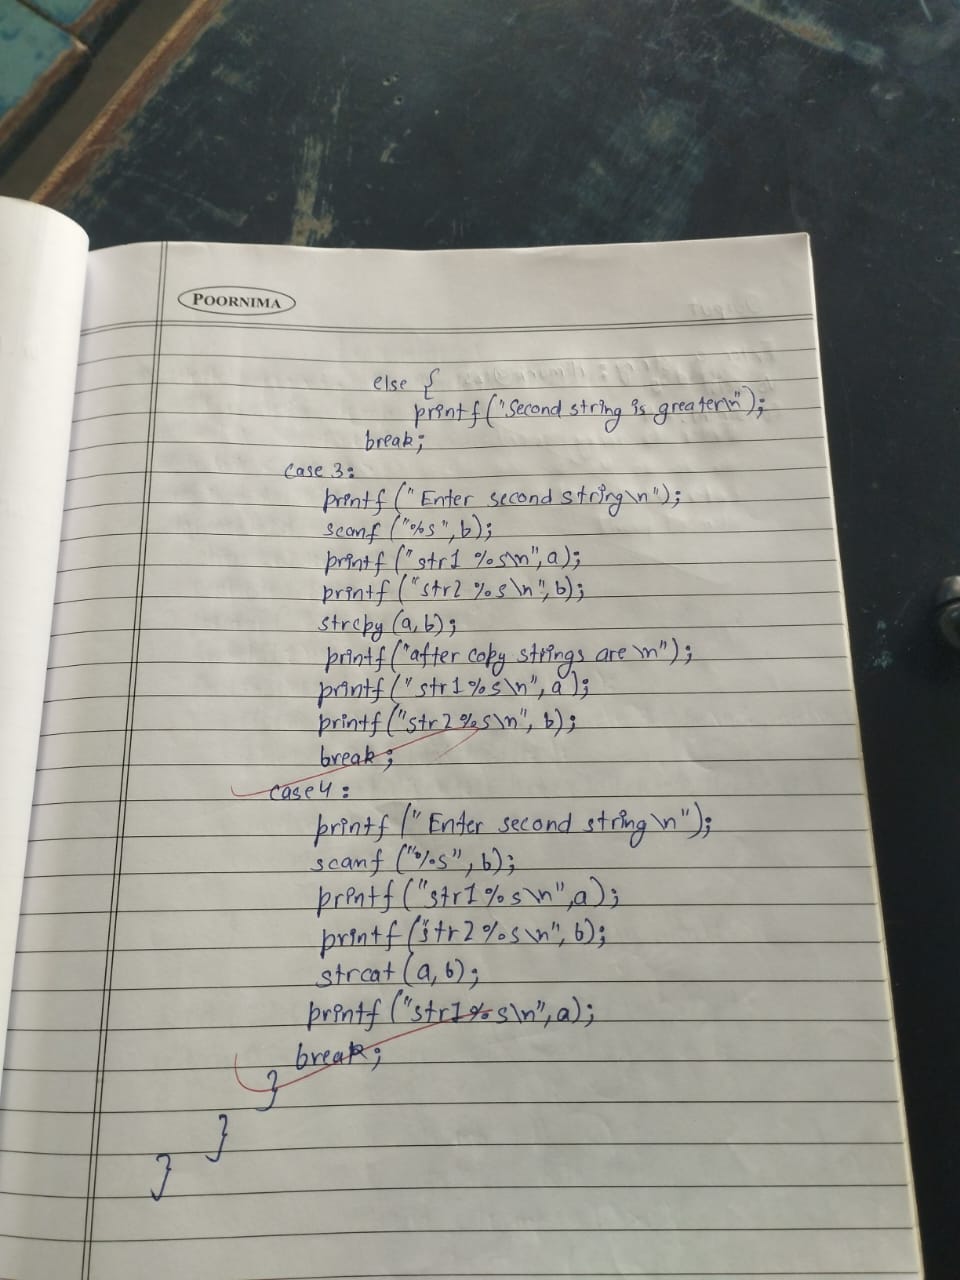 POORNIMA
else {
printf("Second string is greater\n");
break;
case 3:
printf("Enter second string\n");
scanf("%s",b);
printf("str1 %s\n",a);
printf("str2 %s\n",b);
strcpy(a,b);
printf("after copy strings are \n");
printf("str1%s\n",a);
printf("str2%s\n",b);
break;
case 4:
printf("Enter second string\n");
scanf("%s",b);
printf("str1%s\n",a);
printf("str2%s\n",b);
strcat(a,b);
printf("str1%s\n",a);
break;
}
}
}